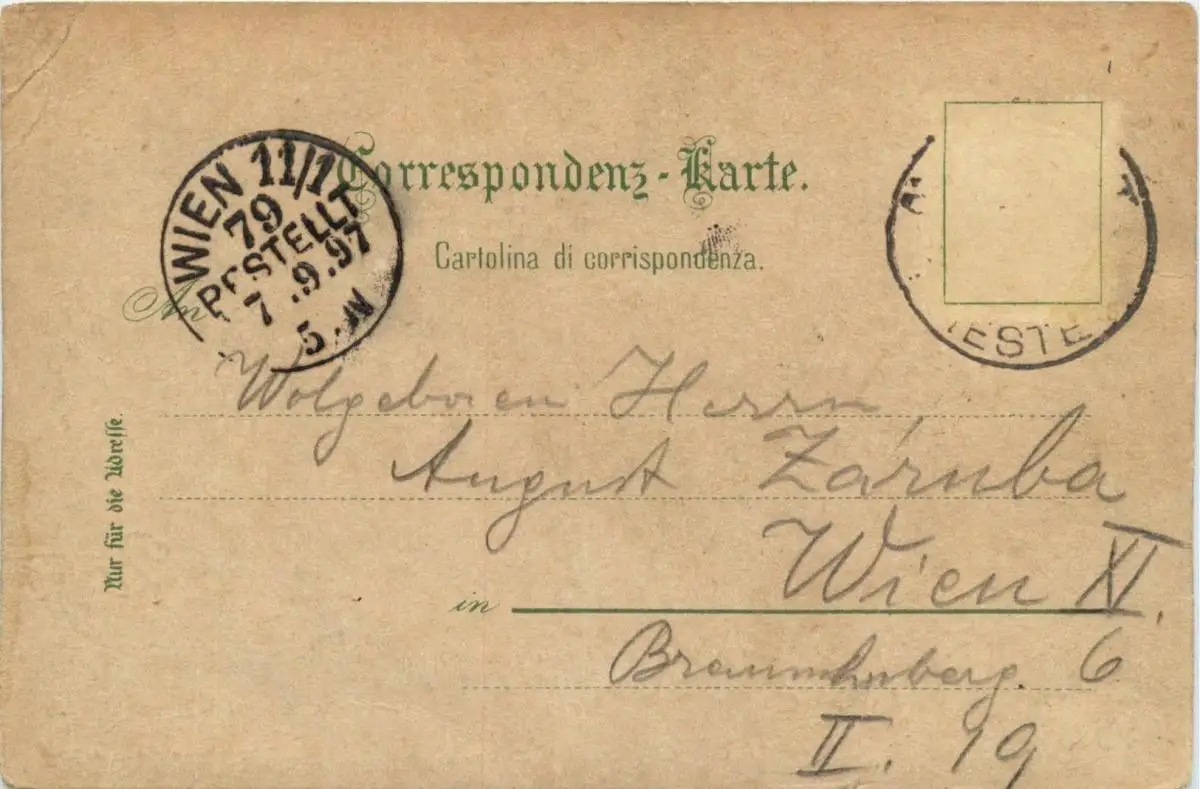 Correspondenz-Karte.
Cartolina di corrispondenza.
WIEN 11/1
79
BESTELLT
7 .9.97
5.N
IESTE
An
Wolgeboren Herrn
August Záruba
Wien XI.
in
6
II. 19
Nur für die Adresse.